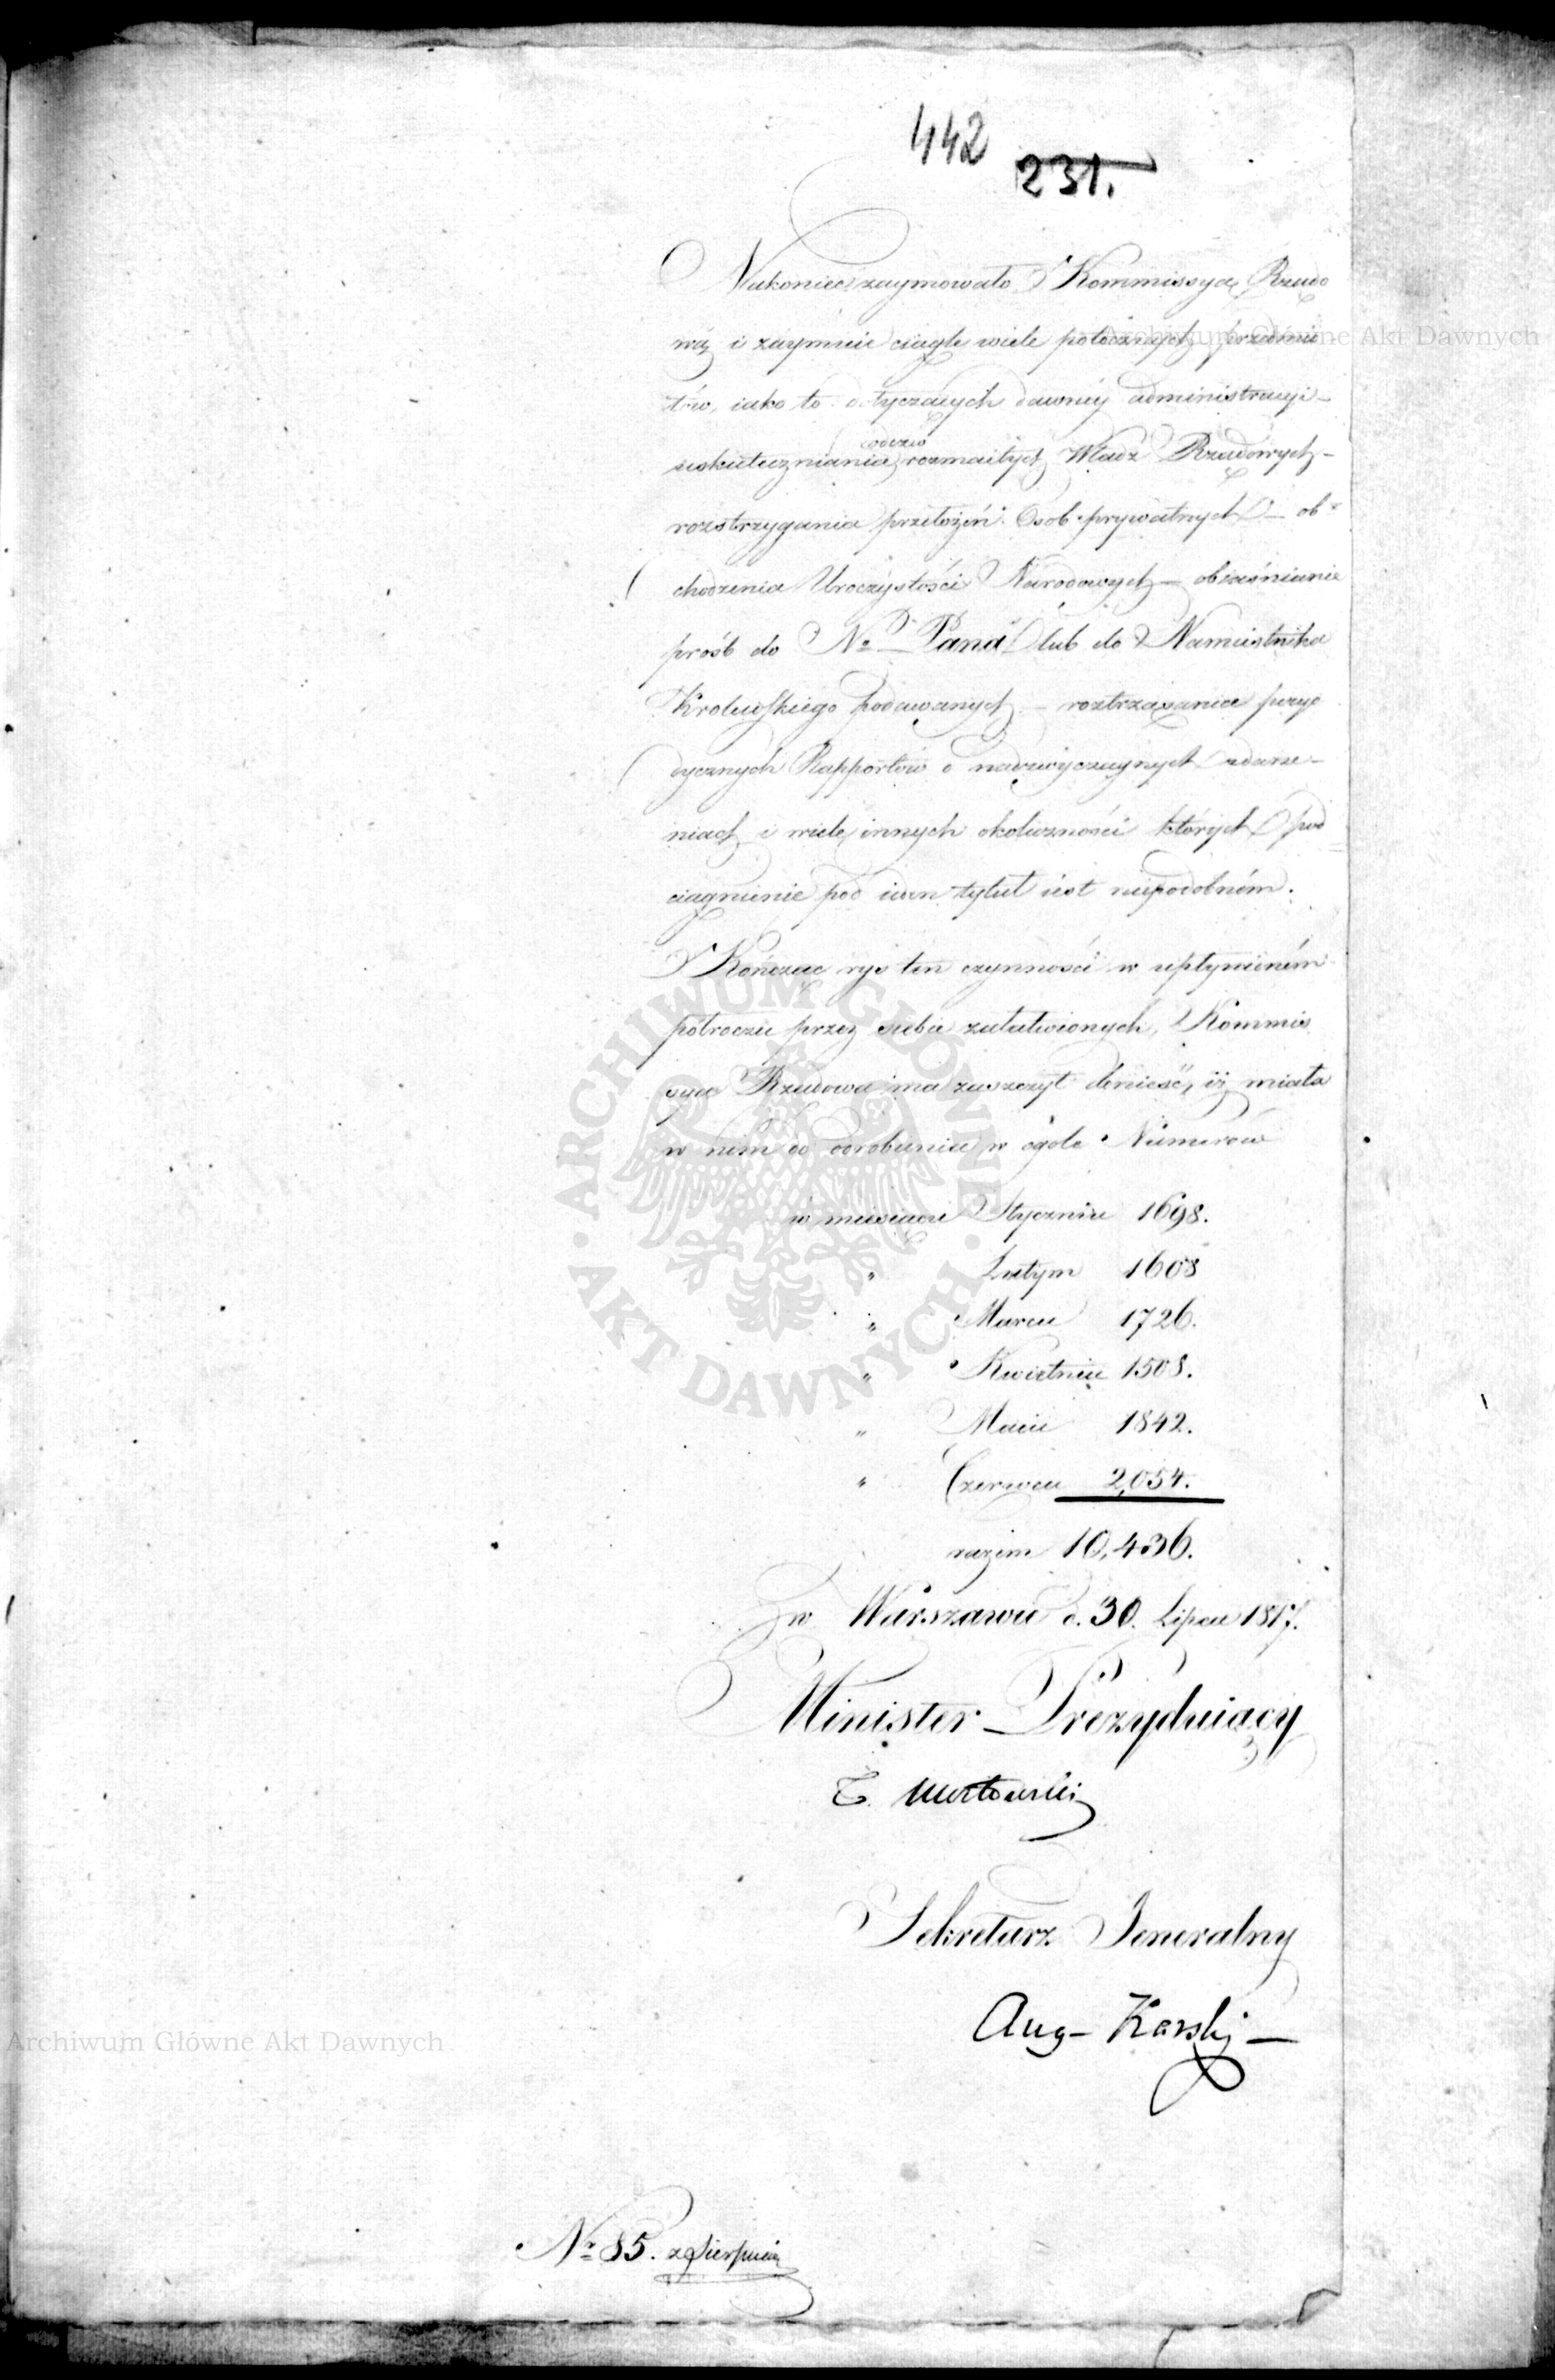 442
231.
Nakoniec zaymowało Kommissyą Rządo
wą i zaymuie ciągle wiele potocznych przedmio
tów, iako to: dotyczących dawnéy administracyi –
uskuteczniania odezw rozmaitych Władz Rządowych –
rozstrzygania przełożeń Osob prywatnych – ob
chodzenia Uroczystości Narodowych – obiaśnianie
prośb do Nо Pana lub do Namiestnika
Krolewskiego podawanych – roztrząsania peryo
dycznych Rapportów o nadzwyczaynych zdarze –
niach i wiele innych okoliczności których pod
ciągnienie pod ieden tytuł iest niepodobném.
Kończąc rys ten czynności w upłynioném
półroczu przez siebie załatwionych, Kommis
sya Rządowa ma zaszczyt donieść, iż miała
w nim do odrobienia w ogóle Numerów
w miesiącu Styczniu 1698.
" Lutym 1608
" Marcu 1726.
" Kwietniu 1508.
" Maiu 1842.
" Czerwcu 2,054.
razem 10,436.
w Warszawie d. 30. Lipca 1817.
Minister Prezyduiący
T. Mostowski
Sekretarz Jeneralny
Aug – Karski –
Nr 85. z Sierpnia
Archiwum Główne Akt Dawnych
Archiwum Główne Akt Dawnych
ARCHIWUM GŁÓWNE AKT DAWNYCH